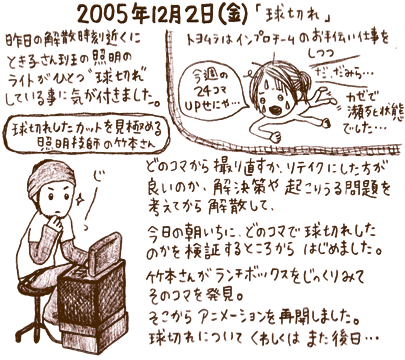 2005年12月2日(金)「球切れ」
昨日の解散時刻近くに
とき子さん班の照明の
ライトがひとつ“球切れ”
している事に気が付きました。
球切れしたカットを見極める
照明技師の竹本さん
トヨムラはインプロチームのお手伝い仕事を
しつつ
だ、だみら…
今週の
24コマ
UPせにゃ…
カゼで
瀕死状態
でした…
じー
どのコマから撮り直すか、リテイクにした方が
良いのか、解決策や起こりうる問題を
考えてから解散して、
今日の朝いちに、どのコマで球切れした
のかを検証するところからはじめました。
竹本さんがランチボックスをじっくりみて
そのコマを発見。
そこからアニメーションを再開しました。
球切れについてくわしくはまた後日…